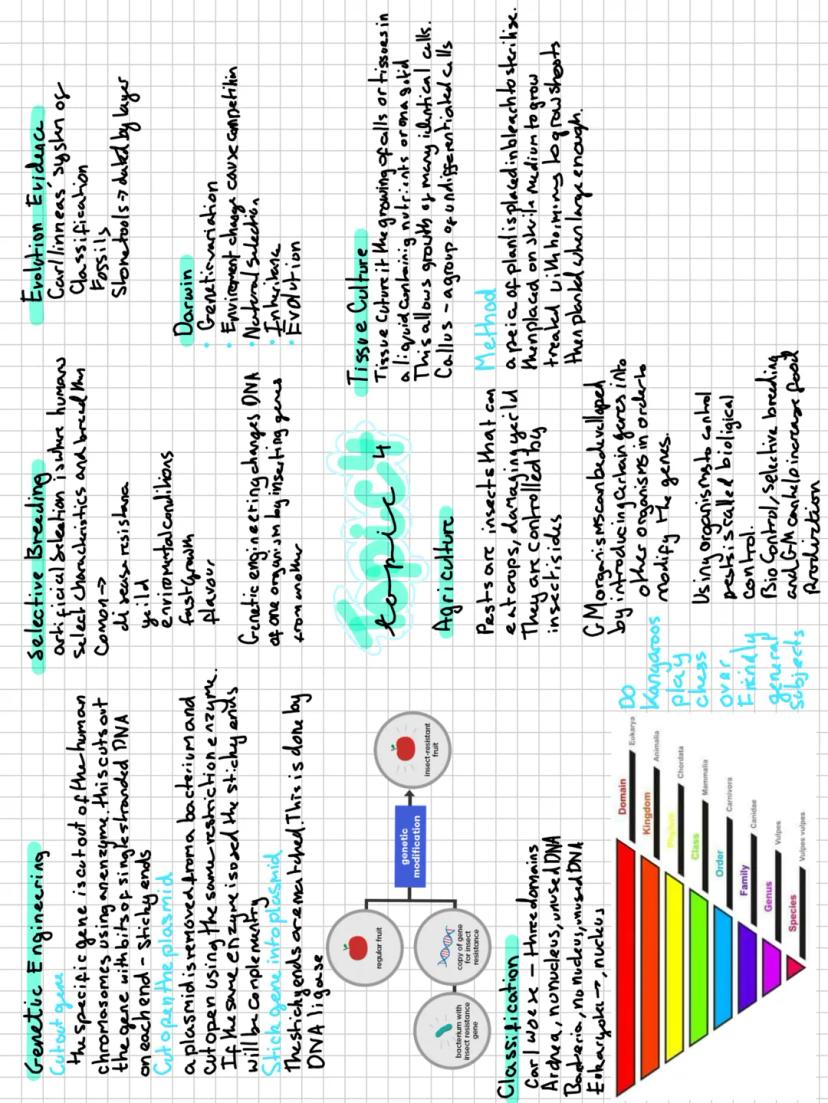 Genetic Engineering
Cut out gene
the specific gene is cut out of the human
chromosomes using an enzyme. this cuts out
the gene with bits of single stranded DNA
on each end - Sticky ends
Cut open the plasmid
a plasmid is removed from a bacterium and
cut open using the same restriction enzyme.
If the same enzyme is used the sticky ends
will be complementy
Stick gene into plasmid
The sticky ends are matched. This is done by
DNA ligase
regular fruit
bacterium with
insect resistance
gene
copy of gene
for insect
resistance
genetic
modification
insect-resistant
fruit
Classification
Carl Woese - three domains
Archea, no nucleus, unused DNA
Bacteria, no nucleus, unused DNA
Eukaryota →, nucleus
Domain
Eukarya
Kingdom
Animalia
Phylum
Chordata
Class
Mammalia
Order
Carnivora
Family
Canidae
Genus
Vulpes
Species
Vulpes vulpes
Do
Kangaroos
play
chess
over
Friendly
general
Subjects
Selective Breeding
artificial Selection is where humans
select characteristics and breed them
Comon →
disease resistance
yeild
enviromental conditions
fast growth
flavour
Genetic engineering changes DNA
of one organism by inserting genes
from another
topic 4
Agriculture
Pests are insects that can
eat crops, damaging yeild
They are controlled by
insectisides
GM organisms can be developed
by introducing certain genes into
other organisms in order to
modify the genes.
Using organisms to control
pests is called biological
control.
Bio Control, Selective breeding
and GM can help increase food
Production
Evolution Evidence
Carl linneas' system of
Classification
Fossils
Stone tools → dated by layer
Darwin
• Genetic variation
• Enviroment change cause competition
• Natural Selection
• Inheritance
• Evolution
Tissue Culture
Tissue Culture it the growing of cells or tissues in
a liquid containing nutrients or on a solid
This allows growth of many identical cells.
Callus - a group of undifferentiated cells
Method
a peice of plant is placed in bleach to sterilise.
then placed on sterile medium to grow
treated with hormones to grow shoots
then planted when large enough.